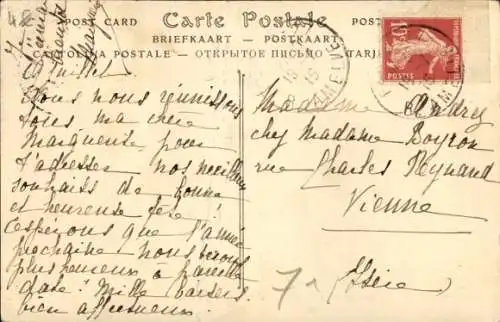 POST CARD
Carte Postale
BRIEFKAART
POSTKAART
POSTALE
ОТКРЫТОЕ ПИСЬМО
10
POSTES
Juillet
Nous nous réunissons
tous ma chère
Marguerite pour
t'adresser nos meilleurs
souhaits de bonne
et heureuse fête !
Espérons que l'année
prochaine nous serons
plus heureux à pareille
date. Mille baisers
bien affectueux
Madame
chez Madame Boyron
rue Charles Reynaud
Vienne
(Isère)